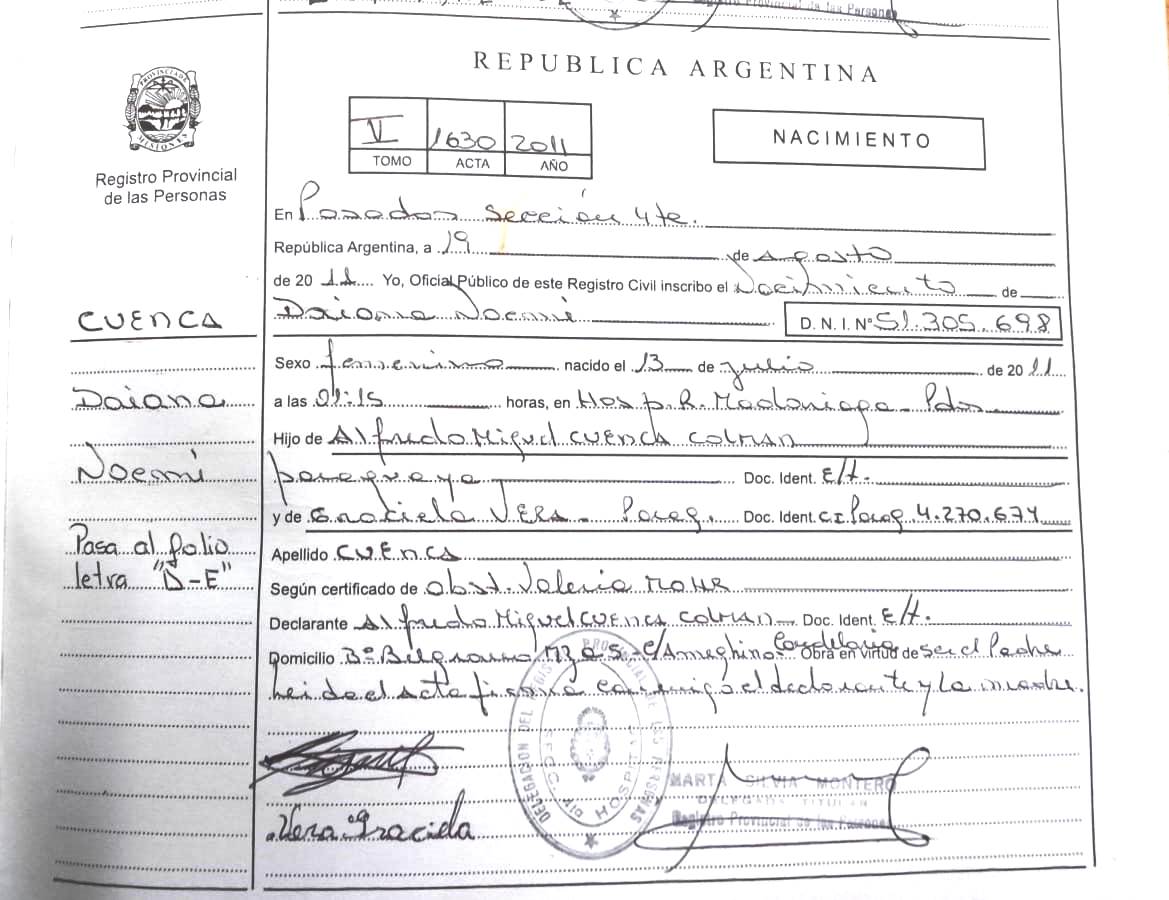 Registro Provincial de las Personas
REPUBLICA ARGENTINA
PROVINCIA DE MISIONES
Registro Provincial
de las Personas
V 1630 2011
TOMO ACTA AÑO
NACIMIENTO
En Posadas Sección 4ta.
República Argentina, a 19 de Agosto
de 2011 Yo, Oficial Público de este Registro Civil inscribo el Nacimiento de
CUENCA
Daiana Noemi D. N. I. Nº 51.305.698
Sexo femenino nacido el 13 de julio de 2011
Daiana
a las 01:15 horas, en Hosp. R. Madariaga - Pdas
Hijo de Alfredo Miguel CUENCA COLMAN
Noemi
paraguaya Doc. Ident. E/t.
y de Graciela VERA - Parag. Doc. Ident. CI Parag 4.270.674
Pasa al folio
letra "D-E"
Apellido CUENCA
Según certificado de Obst. Valeria
Declarante Alfredo Miguel CUENCA COLMAN Doc. Ident. E/t.
Domicilio Bº Belgrano MZ a 5 - C/Ameghino - Candelaria Obra en virtud de ser el Padre
leida el acta firma conmigo el declarante y la madre.
DELEGACION DEL REGISTRO PROVINCIAL DE LAS PERSONAS
SECC. HOSPITAL
MARTA SILVIA MONTERO
DELEGADA TITULAR
Registro Provincial de las Personas
Vera Graciela